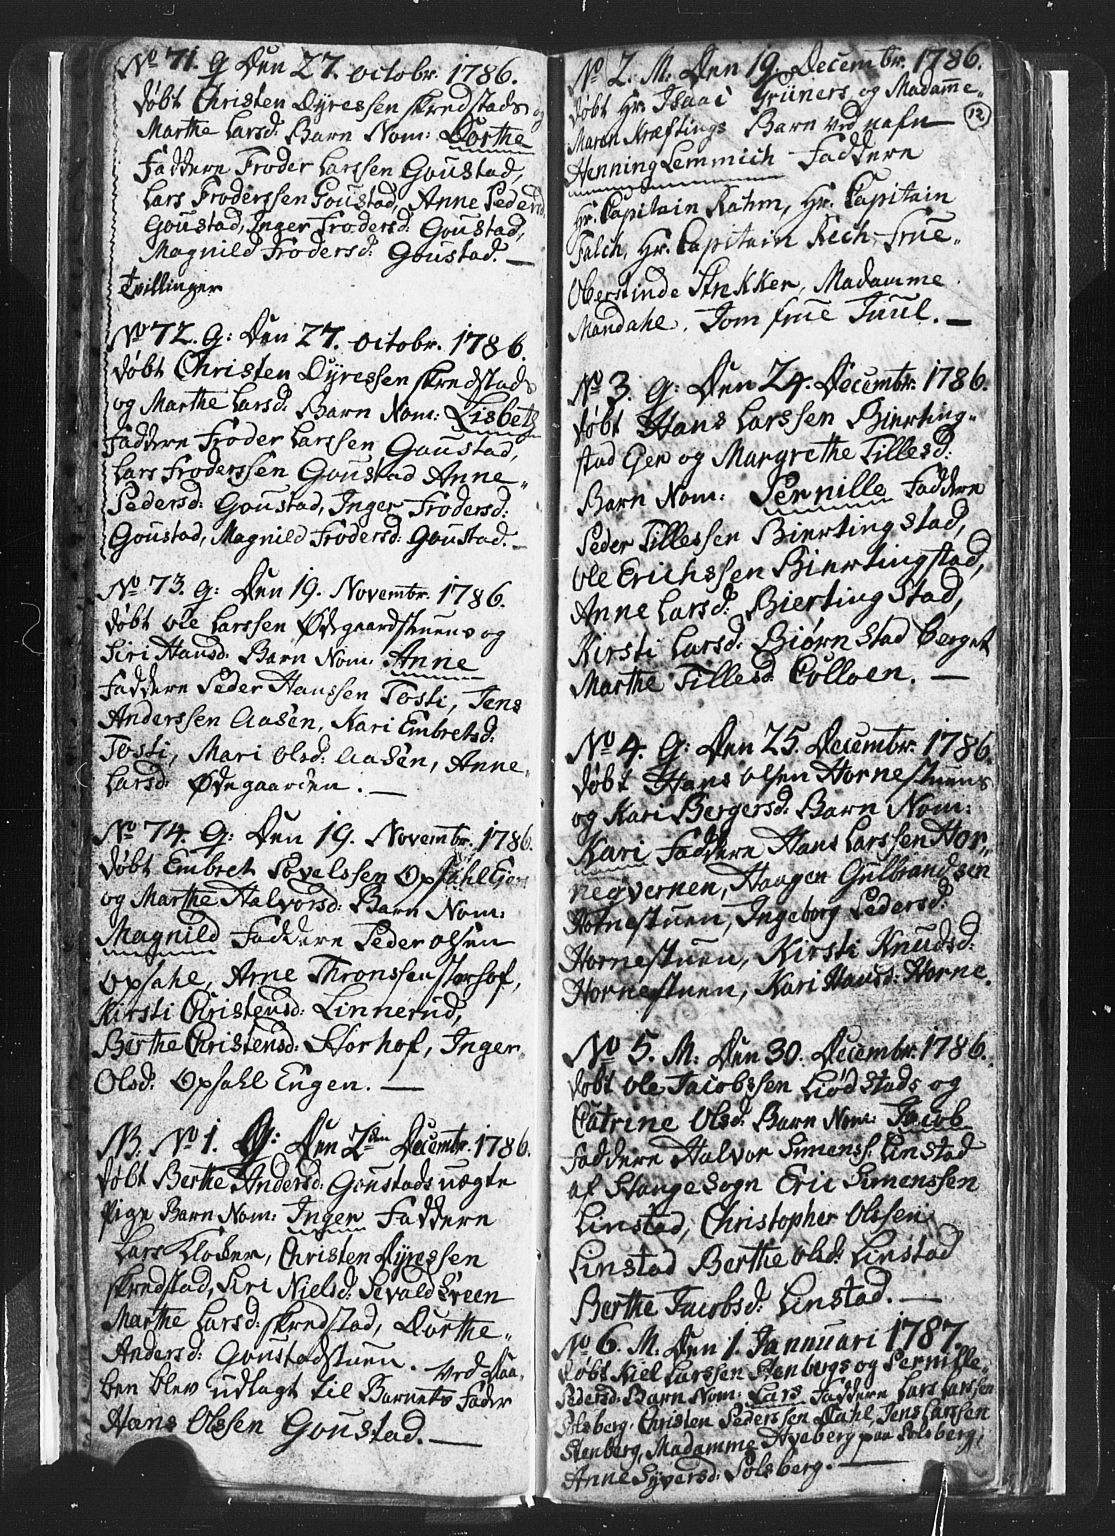 No 71. G Den 27. octobr. 1786.
døbt Christen Dyressen skredstads og
Marthe Larsd: Barn Nom: Dorthe
Faddere Froder Larssen Goustad,
Lars Froderssen Goustad, Anne Pedersd
Goustad, Inger Frodersd: Goustad,
Magnild Frodersd: Goustad. —
Tvillinger
No 72. G: Den 27. octobr. 1786.
døbt Christen Dyressen skredstads
og Marthe Larsd: Barn Nom: Lisbeth
Faddere Froder Larssen Goustad,
Lars Froderssen Goustad Anne
Pedersd: Goustad, Inger Frodersd:
Goustad, Magnild Frodersd: Goustad. —
No 73. G: Den 19. Novembr. 1786.
døbt ole Larssen Ødegaardstuens og
Siri Hansd: Barn Nom: Anne
Faddere Peder Hanssen Tosti, Jens
Anderssen Aasen, Kari Embretsd:
Tosti, Mari olsd: Aasen, Anne
Larsd: Ødegaarden. —
No 74. G: Den 19. Novembr. 1786.
døbt Embret Povelssen Opsahl Egn
og Marthe Halvorsd: Barn Nom:
Magnild Faddere Peder olsen
opsahl, Arne Thronssen storhof,
Kirsti Christensd: Linnerud,
Berthe Christensd: Storhof, Inger
Olsd: Opsahl Eugen. —
NB. No 1. G: Den 2den Decembr. 1786.
døbt Berthe Andersd: Goustads uægte
pige Barn Nom: Inger Faddere
Lars Klocker, Christen Dyressen
skredstad, Siri Nielsd: Sevald Eveen
Marthe Larsd: skredstad, Dorthe
Andersd: Goustadstuen. Ved Daa-
ben blev udlagt til Barnets Fader
Hans Olssen Goustad. —
No 2. M: Den 19. Decembr. 1786.
12
døbt Hr. Isaac Grüners og Madamme
Maren Kræftings Barn ved nafn
Henning Lemmich Faddere
Hr. Capitain Rahm, Hr. Capitain
Falch, Hr. Capitain Rech, Frue
Oberstinde Strikker, Madamme
Mandahl, Jomfrue Juul. —
No 3. G: Den 24. Decembr. 1786.
døbt Hans Larssen Bierting-
stad Egn og Margrethe Tillesd:
Barn Nom: Pernille Faddere
Peder Tillessen Biertingstad,
ole Erichssen Biertingstad,
Anne Larsd: Biertingstad,
Kirsti Larsd: Biørnstad berget
Marthe Tillesd: Colloen. —
No 4. G: Den 25. Decembr. 1786.
døbt Hans olsen Hornestuens
og Kari Bergersd: Barn Nom:
Kari Faddere Hans Larssen Hor-
neqvernen, Haagen Gulbrandsen
Hornestuen, Ingeborg Pedersd:
Hornestuen, Kirsti Knudsd:
Hornestuen, Kari Hansd: Horne.
No 5. M: Den 30. Decembr. 1786.
døbt ole Jacobssen Liødstads og
Catrine Olsd: Barn Nom: Jacob
Faddere Halvor Simens: Linstad
af Stange Sogn Eric Simenssen
Linstad, Christopher Olssen
Linstad Berthe olsd: Linstad
Berthe Jacobsd: Linstad. —
No 6. M. Den 1. Jannuari 1787.
døbt Niel Larssen Stenbergs og Pernille
Pedersd: Barn Nom: Lars Faddere Lars Larssen
Solsberg, Christen Pederssen Dahl, Jens Larssen
Stenberg, Madamme Aveberg paa Solsberg,
Anne Syversd: Solsberg. —